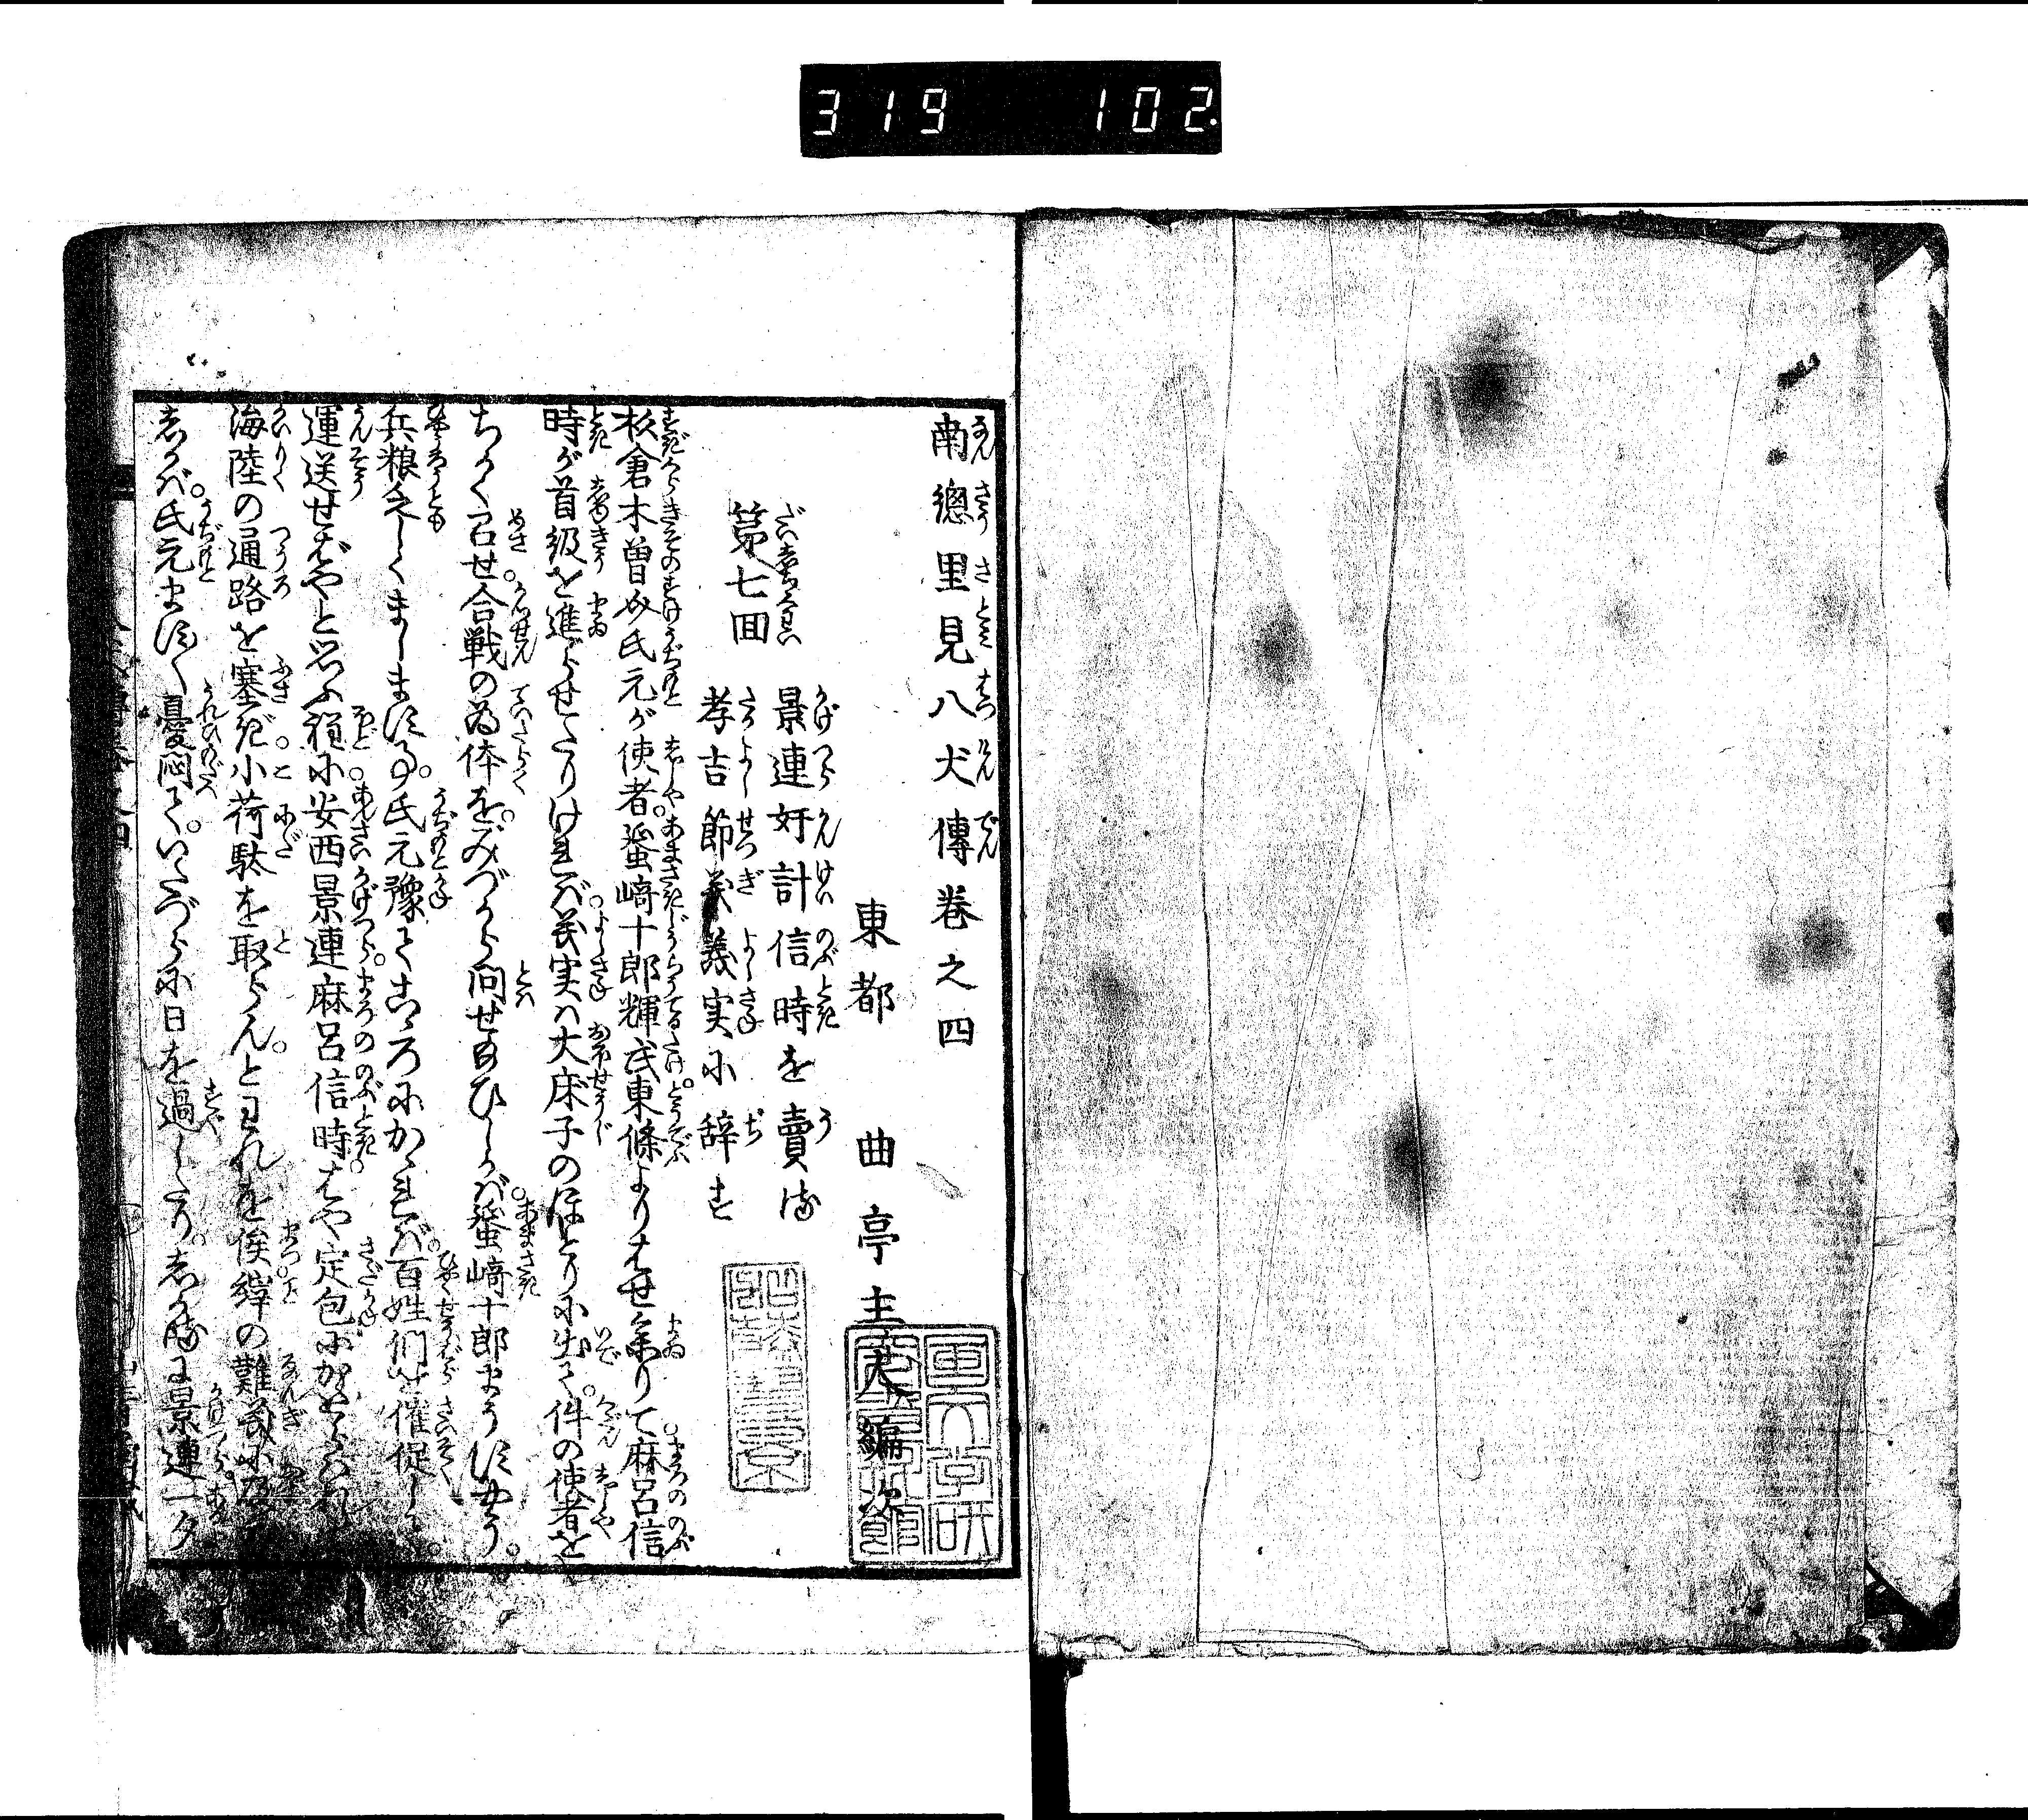 319 102.
南總里見八犬傳卷之四
東都 曲亭主人編次
第七回 景連奸計信時を賣る
孝吉節義義実に辞す
杉倉木曽介氏元が使者。蜑崎十郎輝武東條よりはせ参りて麻呂信
時が首級を進らせたりければ。義実は大床子のほとりに出て。件の使者を
ちかく召せ。合戦の為体を。みづから問せ給ひしかば。蜑崎十郎まうすやう。
兵粮乏しくまします事。氏元豫てこゝろにかゝれば。百姓們を催促しつ。
運送せばやと思ふ程に安西景連麻呂信時はや定包にかたらはれ
海陸の通路を塞ぎ。小荷駄を取らん。とわれを俟。緯の難義に及び
しかば。氏元ます〳〵憂悶て。いたづらに日を過したり。しかるに景連一夕